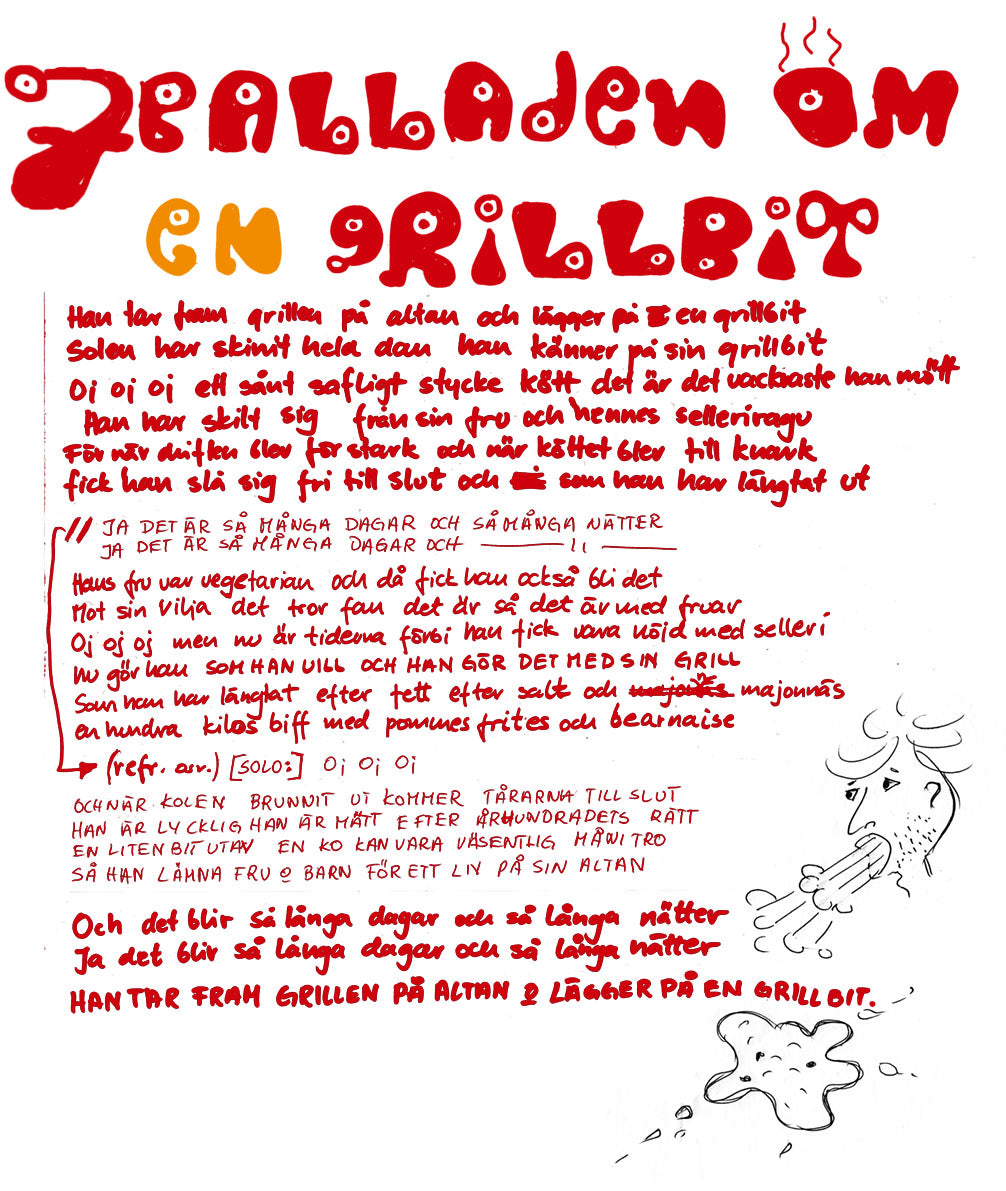 7 BALLADEN OM
EN GRILLBIT
Han tar fram grillen på altan och lägger på en grillbit
Solen har skinit hela dan han känner på sin grillbit
Oj oj oj ett sånt saftigt stycke kött det är det vackraste han mött
Han har skilt sig från sin fru och hennes selleriragu
För när driften blev för stark och när köttet blev till knark
fick han slå sig fri till slut och som han har längtat ut
JA DET ÄR SÅ MÅNGA DAGAR OCH SÅ MÅNGA NÄTTER
JA DET ÄR SÅ MÅNGA DAGAR OCH — 11 —
Hans fru var vegetarian och då fick han också bli det
Mot sin vilja det tror fan det är så det är med fruar
Oj oj oj men nu är tiderna förbi han fick vara nöjd med selleri
nu gör han SOM HAN VILL OCH HAN GÖR DET MED SIN GRILL
Som han har längtat efter fett efter salt och majonnäs majonnäs
en hundra kilos biff med pommes frites och bearnaise
(refr. arr.) [SOLO:] Oj Oj Oj
OCH NÄR KOLEN BRUNNIT UT KOMMER TÅRARNA TILL SLUT
HAN ÄR LYCKLIG HAN ÄR MÄTT EFTER ÅRHUNDRADETS RÄTT
EN LITEN BIT UTAV EN KO KAN VARA VÄSENTLIG MÅNI TRO
SÅ HAN LÄMNA FRU O BARN FÖR ETT LIV PÅ SIN ALTAN
Och det blir så långa dagar och så långa nätter
Ja det blir så långa dagar och så långa nätter
HAN TAR FRAM GRILLEN PÅ ALTAN O LÄGGER PÅ EN GRILLBIT.